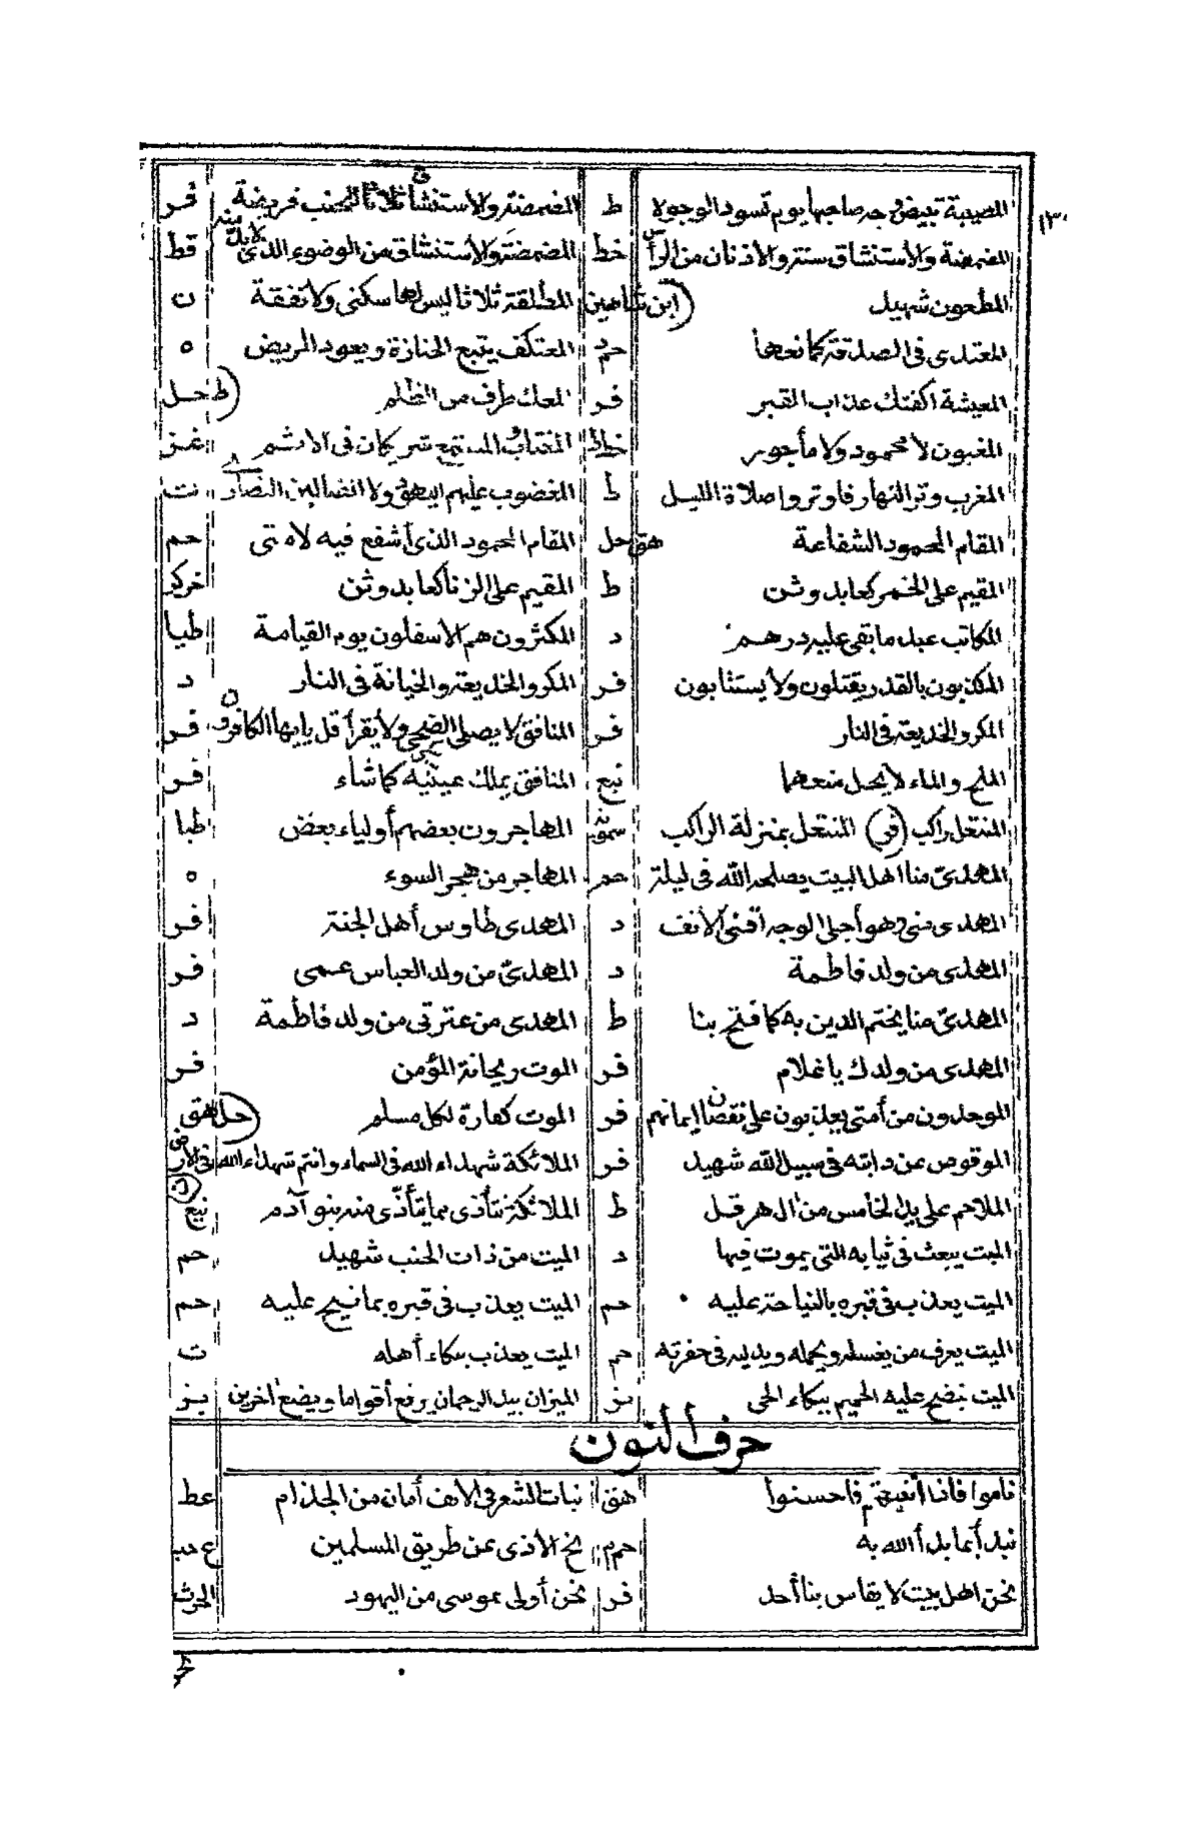 ١٣٠
المصيبة تبيض وجه صاحبها يوم تسود الوجوه ط المضمضة والاستنشاق ثلاثا للجنب فريضة فر
المضمضة والاستنشاق سنة والاذنان من الرأس خط المضمضة والاستنشاق من الوضوء الذى لابد منه قط
المطعون شهيد (ابن شاهين المطلقة ثلاثا ليس لها سكنى ولا نفقة ن
المعتدى فى الصدقة كمانعها حم د المعتكف يتبع الجنازة ويعود المريض ه
المعيشة الضنك عذاب القبر فر المعك طرف من الظلم (ط حل
المغبون لا محمود ولا مأجور خط المغتاب والمستمع شريكان فى الاثم
المغرب وتر النهار فاوتروا صلاة الليل ط المغضوب عليهم اليهود ولا الضالين النصارى ت
المقام المحمود الشفاعة هق حل المقام المحمود الذى أشفع فيه لامتى حم
المقيم على الخمر كعابد وثن ط المقيم على الزنا كعابد وثن
المكاتب عبد ما بقى عليه درهم د المكثرون هم الاسفلون يوم القيامة طيا
المكذبون بالقدر يقتلون ولا يستتابون فر المكر والخديعة والخيانة فى النار د
المكر والخديعة فى النار فر المنافق لا يصلى الضحى ولا يقرأ قل يايها الكافرون فر
الملح والماء لا يحل منعهما نيع المنافق يملك عينيه كما شاء فر
المنتعل راكب (فر) المنتعل بمنزلة الراكب سمويه المهاجرون بعضهم أولياء بعض طبا
المهدى منا اهل البيت يصلحه الله فى ليلة حم المهاجر من هجر السوء ه
المهدى منى وهو أجلى الوجه أقنى الانف د المهدى طاوس أهل الجنة فر
المهدى من ولد فاطمة د المهدى من ولد العباس عمى فر
المهدى منا يختم الدين به كما فتح بنا ط المهدى من عترتى من ولد فاطمة د
المهدى من ولدك يا غلام فر الموت ريحانة المؤمن فر
الموحدون من أمتى يعذبون على نقصان ايمانهم فر الموت كفارة لكل مسلم (حل هق
الموقوص عن دابته فى سبيل الله شهيد فر الملائكة شهداء الله فى السماء وانتم شهداء الله فى الارض (ن)
الملاحم على يد الخامس من ال هرقل ط الملائكة تتأذى مما يتأذى منه بنو آدم نيع
الميت يبعث فى ثيابه التى يموت فيها د الميت من ذات الجنب شهيد حم
الميت يعذب فى قبره بالنياحة عليه حم الميت يعذب فى قبره بما نيح عليه حم
الميت يعرف من يغسله ويحمله ويدليه فى حفرته حم الميت يعذب ببكاء أهله ت
الميت ينضح عليه الحميم ببكاء الحى بز الميزان بيد الرحمان يرفع أقواما ويضع اخرين بز
حرف النون
ناموا فاذا أنتبهتم فاحسنوا هق نبات الشعر فى الانف أمان من الجذام عط
نبدأ بما بدأ الله به حم م نح الاذى عن طريق المسلمين ع حب
نحن اهل بيت لا يقاس بنا أحد فر نحن أولى بموسى من اليهود الحرث